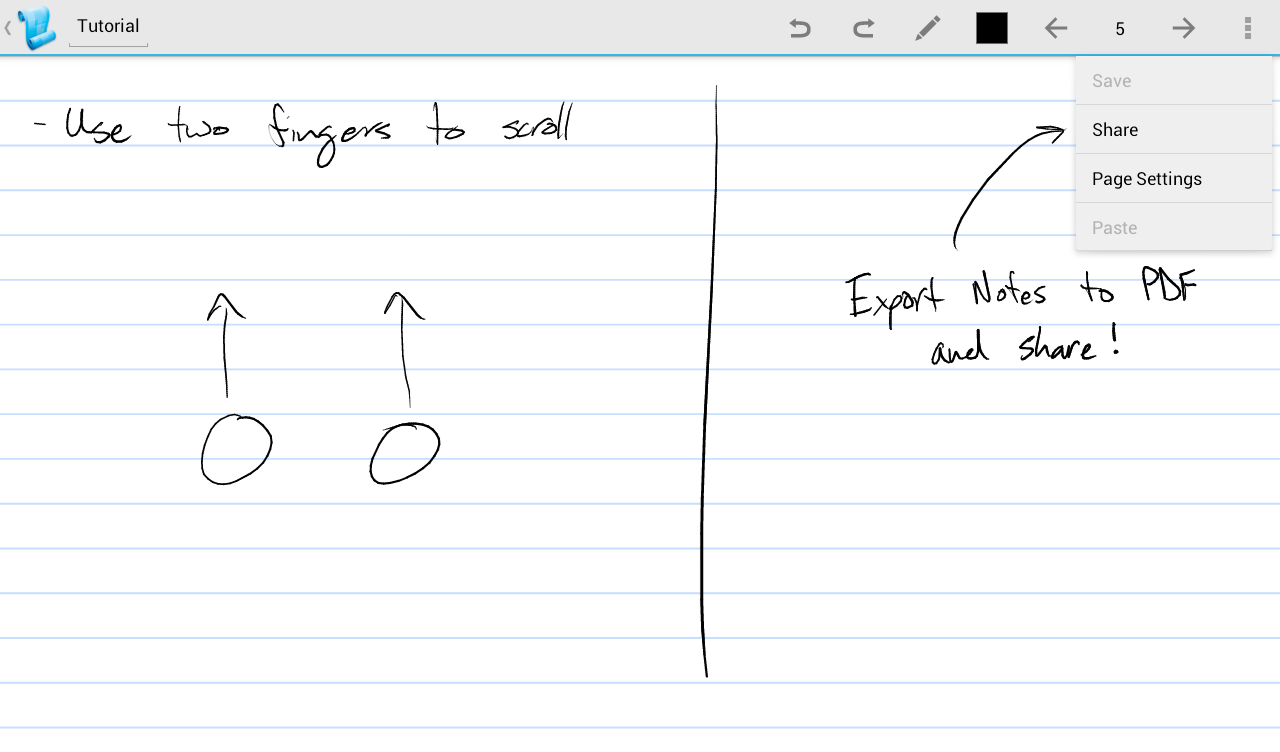 Tutorial
5
Save
Share
Page Settings
Paste
- Use two fingers to scroll
Export Notes to PDF
and share!